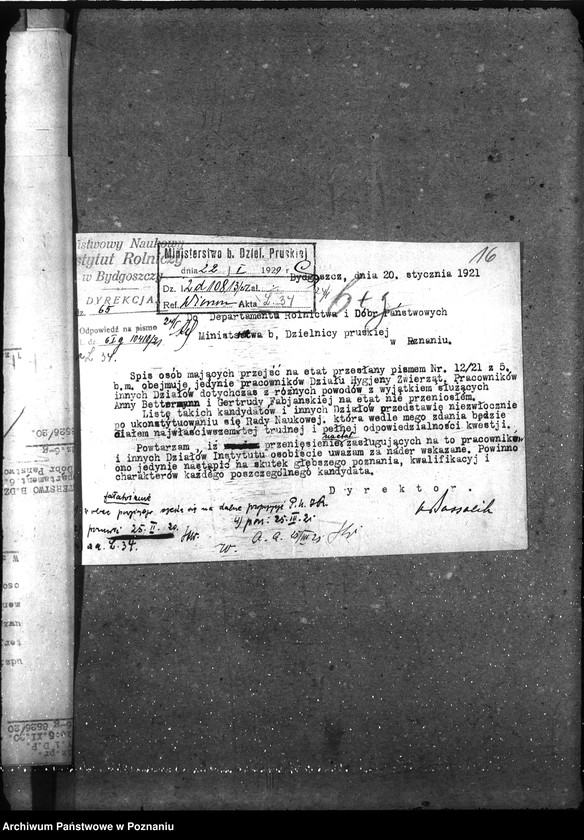 16
ństwowy Naukowy
nstytut Rolniczy
w Bydgoszczy
DYREKCJA
65
Odpowiedź na pismo
L. 34.
Ministerstwo b. Dziel. Pruskiej
dnia 22 I 1929 r
Dz. I.
Ref. Akta L. 34
Bydgoszcz, dnia 20. stycznia 1921
Do Departamentu Rolnictwa i Dóbr Państwowych
Ministwa b, Dzielnicy pruskiej
w Poznaniu.
Spis osób mających przejść na etat przesłany pismem Nr. 12/21 z 5.
b.m. obejmuje jedynie pracowników Działu Hygjeny Zwierząt. Pracowników
innych Działów dotychczas z różnych powodów z wyjątkiem służących
Anny Bettermann i Gertrudy Fabjańskiej na etat nie przeniosłem.
Listę takich kandydatów i innych Działów przedstawię niezwłocznie
po ukonstytuowaniu się Rady Naukowej, która wedle mego zdania będzie
ciałem najwłaściwszem tej trudnej i pełnej odpowiedzialności kwestji.
Powtarzam, iż przeniesienie na etat zasługujących na to pracowników
i innych Działów Instytutu osobiście uważam za nader wskazane. Powinno
ono jedynie nastąpić na skutek głębszego poznania, kwalifikacyj i
charakterów każdego poszczególnego kandydata.
Dyrektor.
25. II. 20.
aa. L. 34.
a. a.
8526/20
Archiwum Państwowe w Poznaniu